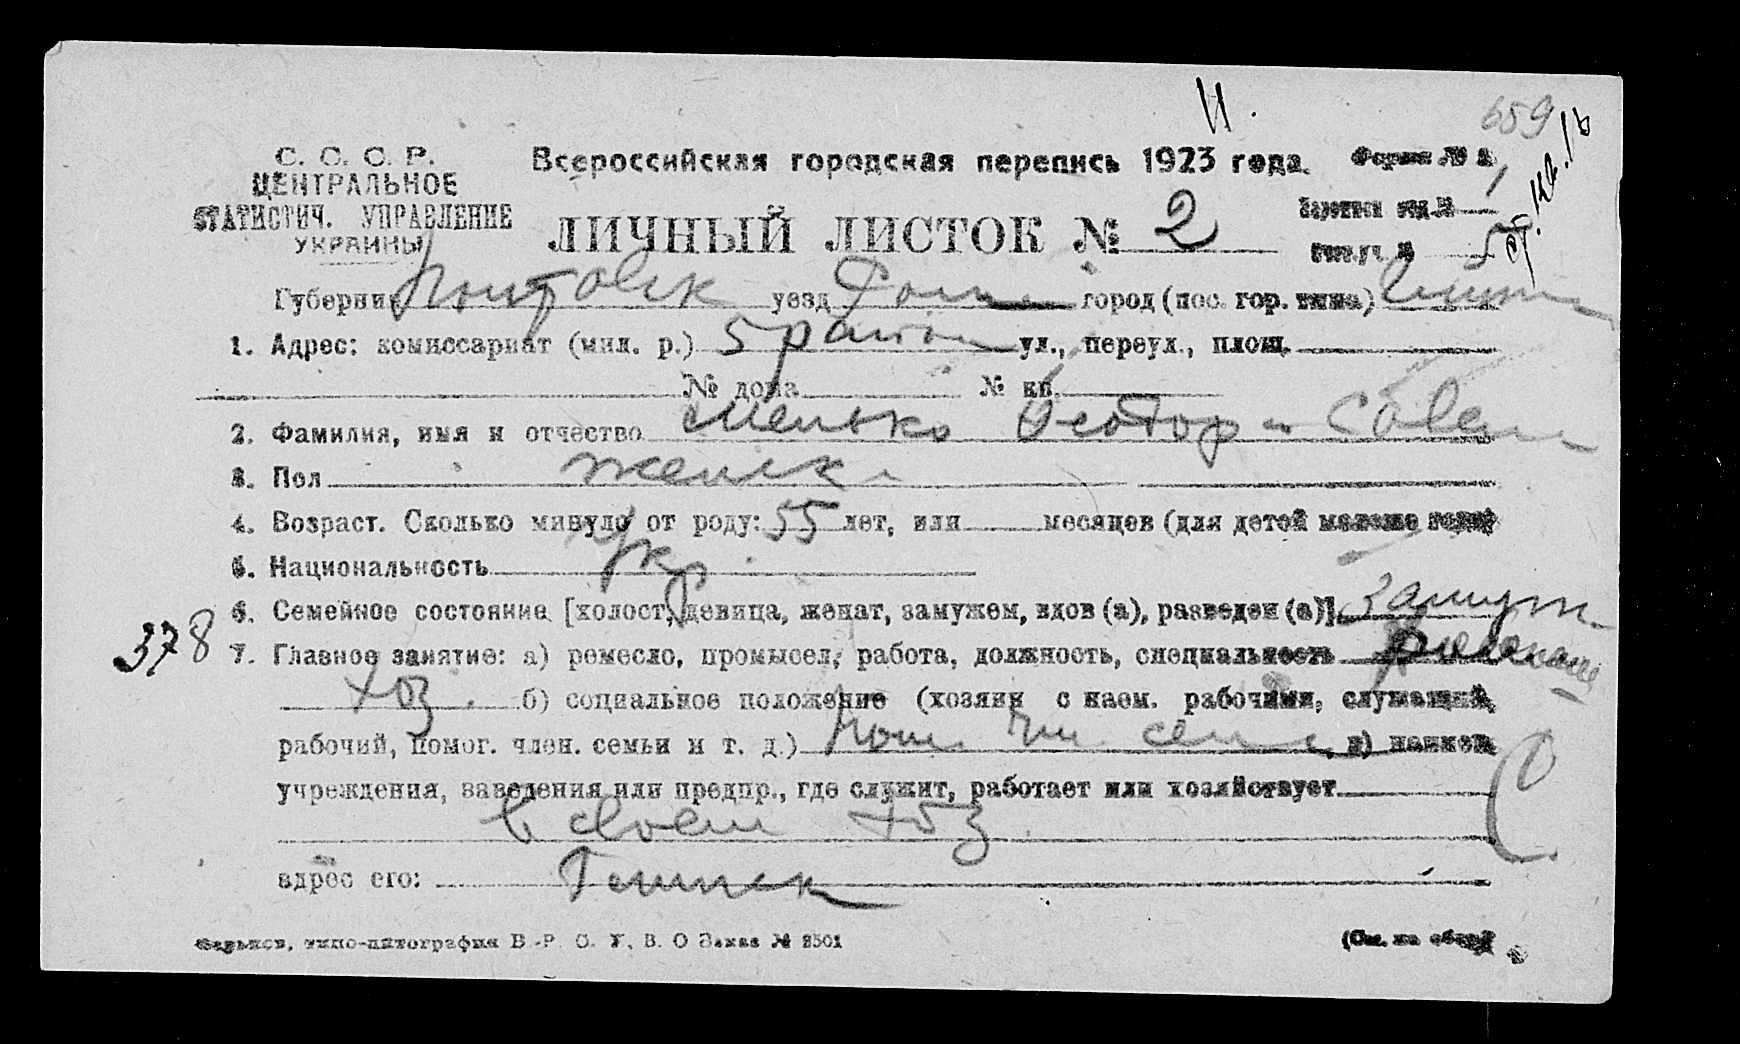 И.
659
С. С. С. Р. Всероссийская городская перепись 1923 года. Форма № 2
ЦЕНТРАЛЬНОЕ
СТАТИСТИЧ. УПРАВЛЕНИЕ
УКРАИНЫ
ЛИЧНЫЙ ЛИСТОК № 2
Губерния Полтавск уезд город (пос. гор. типа)
1. Адрес: комиссариат (мил. р.) 5 район ул., переул., площ.
№ дома № кв.
2. Фамилия, имя и отчество
3. Пол женск
4. Возраст. Сколько минуло от роду: 55 лет, или месяцев (для детей моложе года)
5. Национальность Укр
6. Семейное состояние [холост, девица, женат, замужем, вдов (а), разведен (а)] Замуж.
378
7. Главное занятие: а) ремесло, промысел, работа, должность, специальность
хоз. б) социальное положение (хозяин с наем. рабочими, служащий,
рабочий, помог. член. семьи и т. д.) пом. чл. семьи, в) наимен
учреждения, заведения или предпр., где служит, работает или хозяйствует
в своем хоз
адрес его:
Харьков, типо-литография В.-Р. С. У. В. О Заказ № 2501
(См. на обор.)